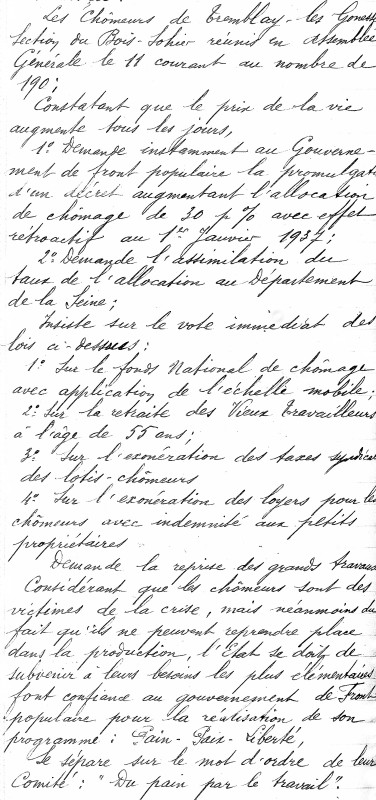 Les Chômeurs de Tremblay-les Gonesse
Section du Bois-Sohier réunis en Assemblée
Générale le 11 courant au nombre de
190;
Constatant que le prix de la vie
augmente tous les jours,
1º Demande instamment au Gouverne-
ment de front populaire la promulgati
d'un décret augmentant l'allocation
de chômage de 30 p % avec effet
rétroactif au 1er Janvier 1937;
2º Demande l'assimilation du
taux de l'allocation au Département
de la Seine;
Insiste sur le vote immédiat des
lois ci-dessus:
1º Sur le fonds National de chômage
avec application de l'échelle mobile;
2º Sur la retraite des Vieux travailleurs
à l'âge de 55 ans;
3º Sur l'exonération des taxes syndica
des lotis-chômeurs
4º Sur l'exonération des loyers pour les
chômeurs avec indemnité aux petits
propriétaires
Demande la reprise des grands travaux
Considérant que les chômeurs sont des
victimes de la crise, mais néanmoins du
fait qu'ils ne peuvent reprendre place
dans la production l'Etat se doit de
subvenir à leurs besoins les plus élémentaires
font confiance au gouvernement de Front
populaire pour la réalisation de son
programme: Pain-Paix-Liberté,
Se sépare sur le mot d'ordre de leur
Comité: "Du pain par le travail".